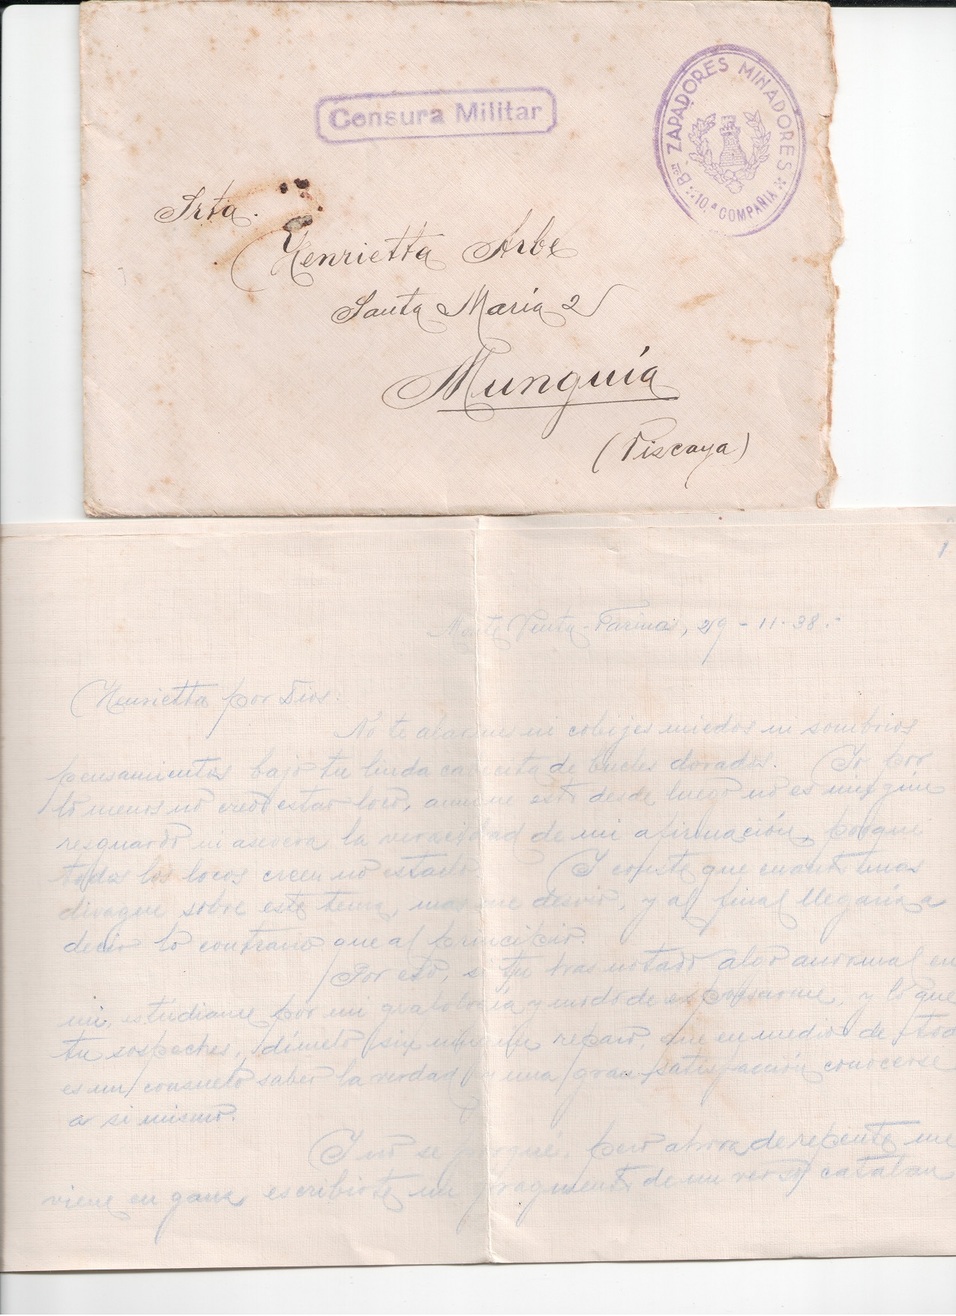 Censura Militar
Bón ZAPADORES MINADORES
10.ª COMPAÑIA
Srta.
Henrietta Arbe
Santa María 2
Munguía
(Viscaya)
1
Monte Venta-Farinas, 29-11-38.-
Henrietta por Dios:
No te alarmes ni cobijes miedos ni sombrios
pensamientos bajo tu linda cabecita de bucles dorados. Yo por
lo menos no creo estar loco, aunque esto desde luego no es ningún
resguardo ni asevera la veracidad de mi afirmación, porque
todos los locos creen no estarlo. Y conste que cuanto mas
divague sobre este tema, mas me desvio, y al final llegaria a
decir lo contrario que al principio.
Por esto, si tu has notado algo anormal en
mi, estudiame por mi grafologia y modo de expresarme, y lo que
tu sospeches, dimelo sin ningun reparo, que en medio de todo
es un consuelo saber la verdad y una gran satisfacción conocerse
a si mismo.
Y no se porqué, pero ahora de repente me
viene en gana escribirte un fragmento de un verso catalan